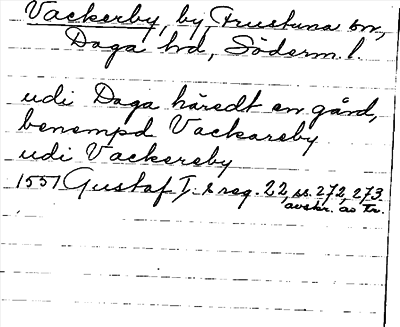 Vackerby, by, Frustuna sn,
Daga hd, Söderm. l.
udi Daga häredt en gård,
benempd Vackareby
udi Vackereby
1551 Gustaf I:s reg. 22, ss. 272, 273
avskr. av Tr.